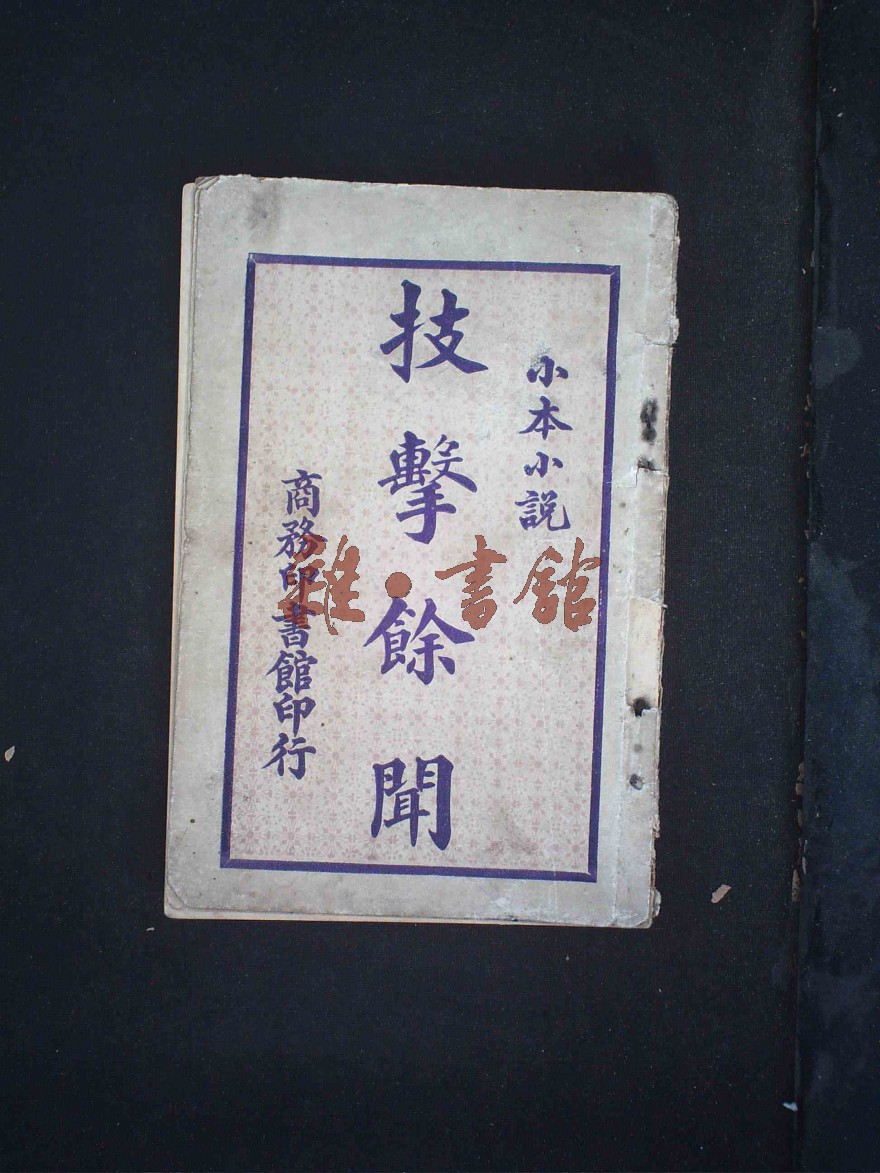 小本小説
技擊餘聞
商務印書館印行
雜·書館